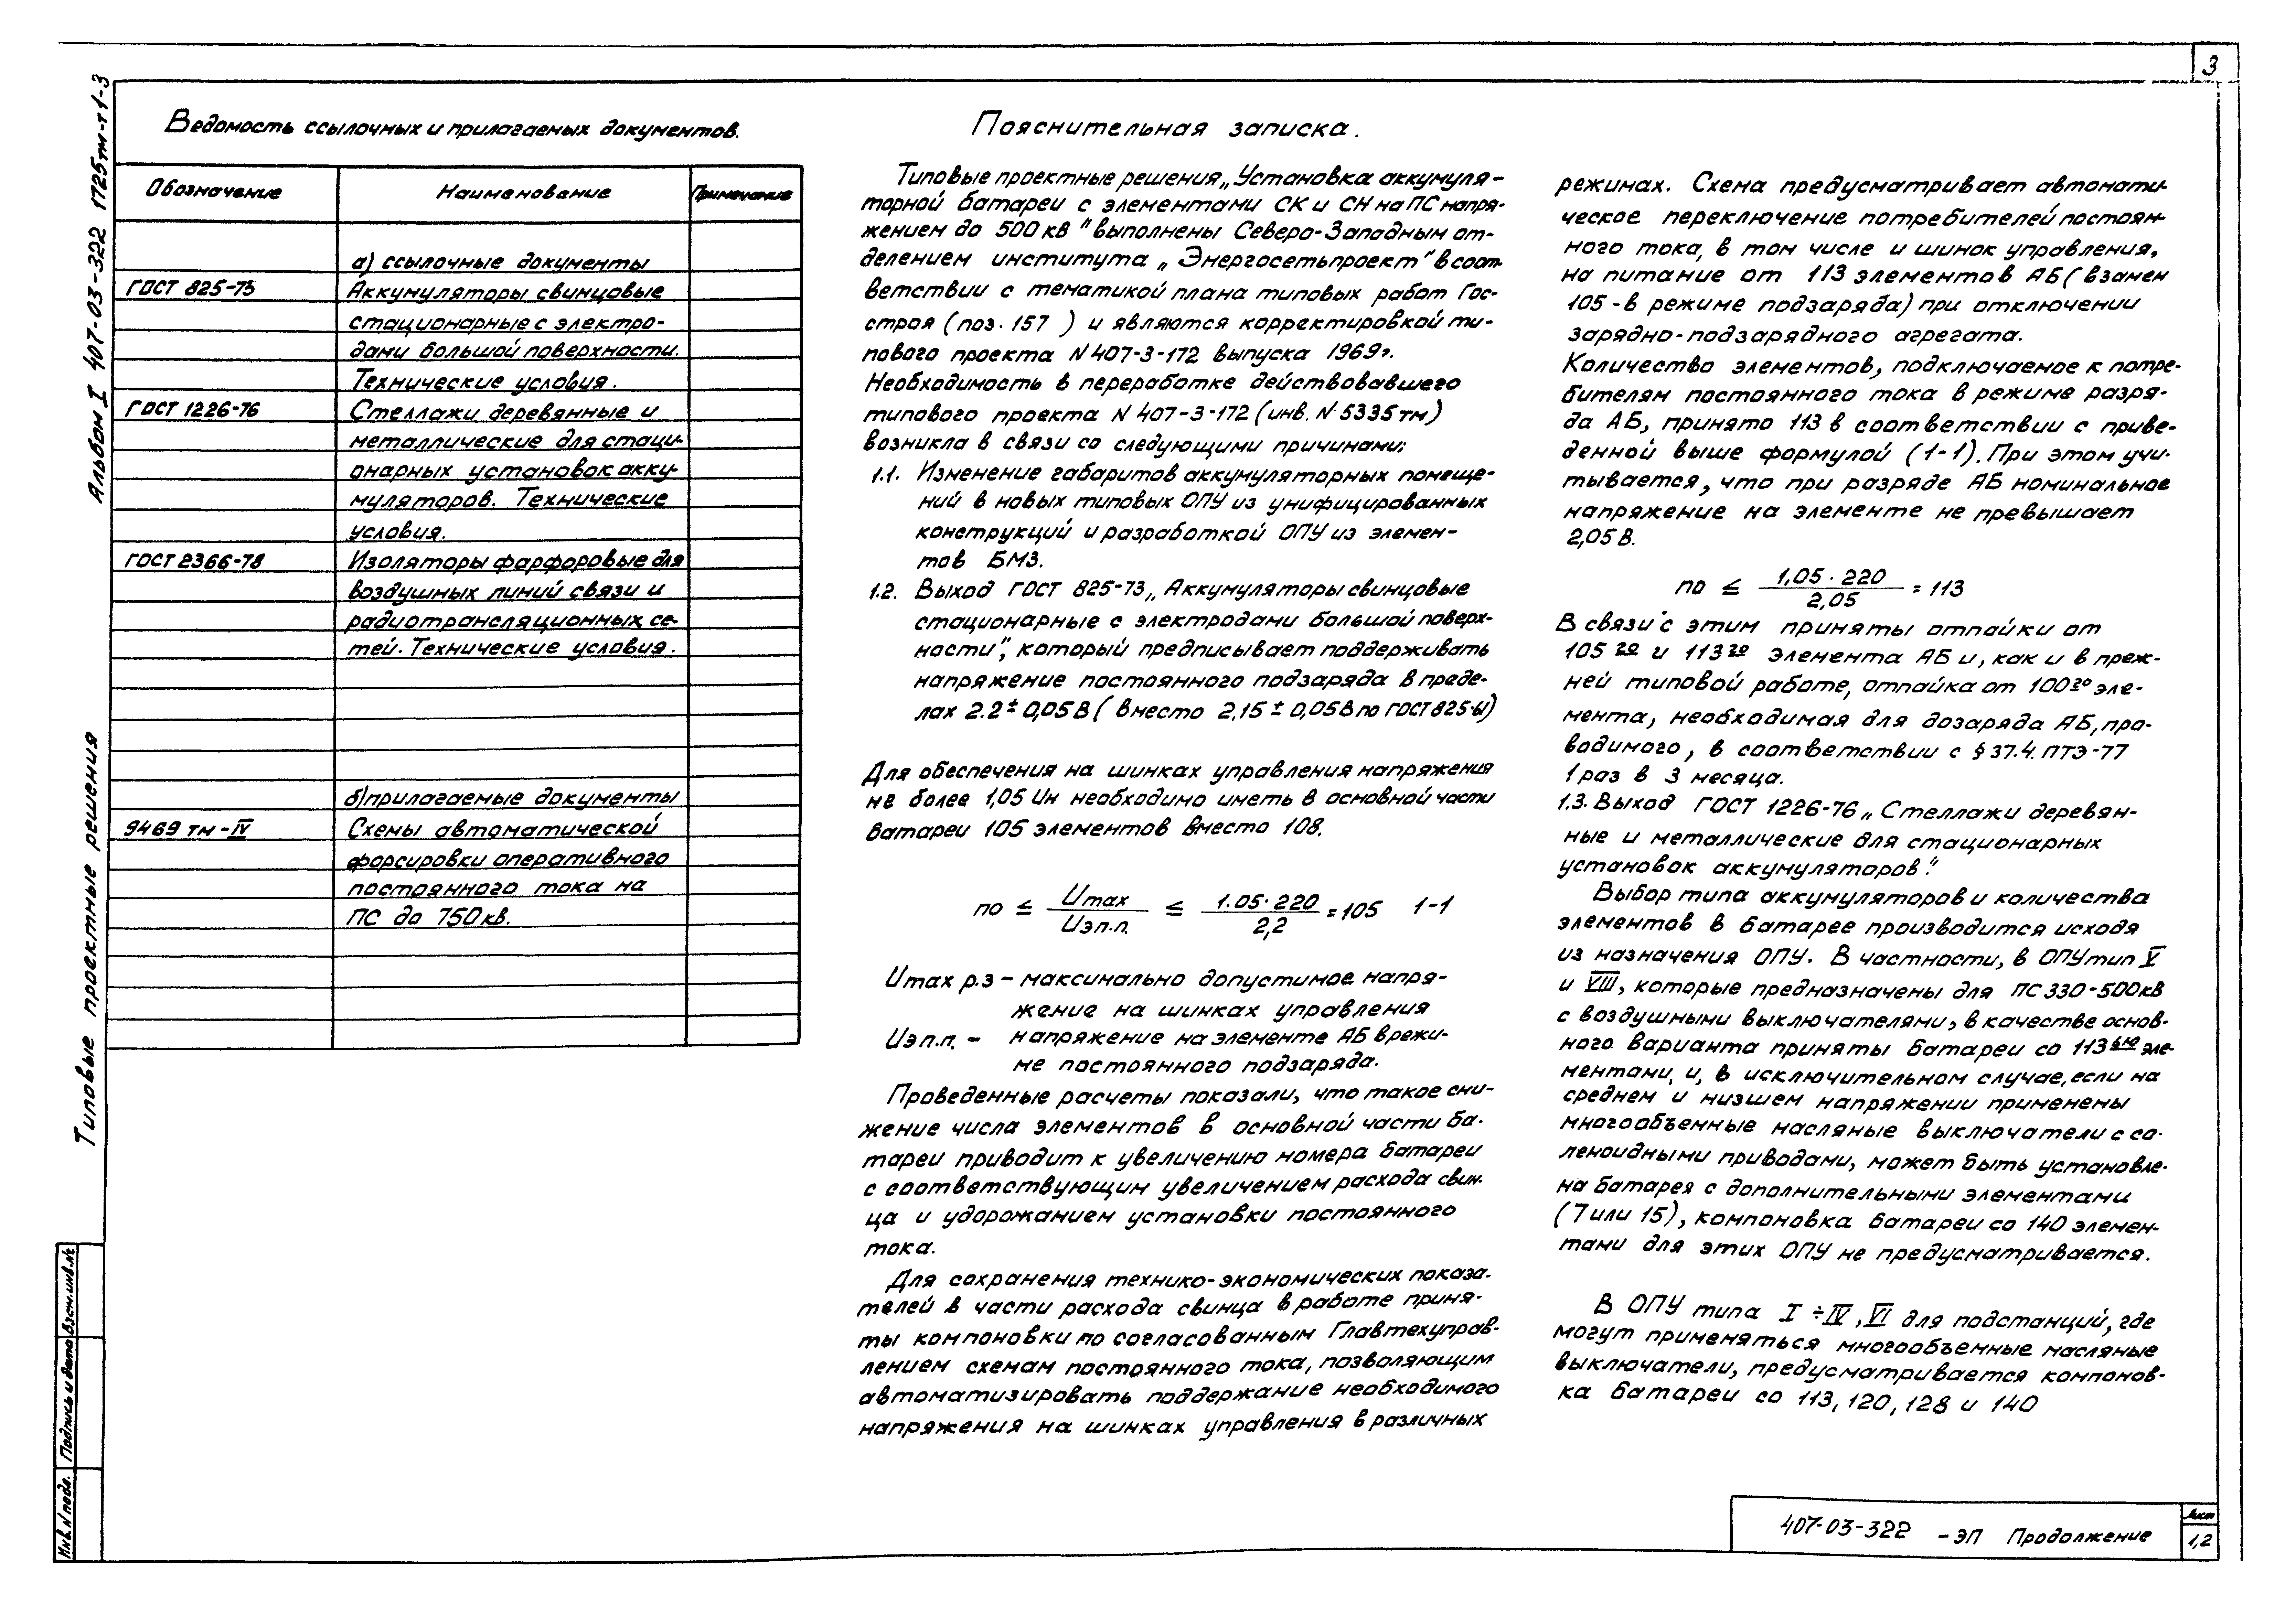 3
Альбом I 407-03-322 1725тм-т1-3
Типовые проектные решения
Ведомость ссылочных и прилагаемых документов.
Обозначение Наименование Примечание
а) ссылочные документы
ГОСТ 825-73 Аккумуляторы свинцовые
стационарные с электро-
дами большой поверхности.
Технические условия.
ГОСТ 1226-76 Стеллажи деревянные и
металлические для стаци-
онарных установок акку-
муляторов. Технические
условия.
ГОСТ 2366-78 Изоляторы фарфоровые для
воздушных линий связи и
радиотрансляционных се-
тей. Технические условия.
б) прилагаемые документы
9469 тм-IV Схемы автоматической
форсировки оперативного
постоянного тока на
ПС до 750кв.
Пояснительная записка.
Типовые проектные решения „Установка аккумуля-
торной батареи с элементами СК и СН на ПС напря-
жением до 500 кВ" выполнены Северо-Западным от-
делением института „Энергосетьпроект" в соот-
ветствии с тематикой плана типовых работ Гос-
строя (поз. 157 ) и являются корректировкой ти-
пового проекта N407-3-172 выпуска 1969г.
Необходимость в переработке действовавшего
типового проекта N 407-3-172 (инв. N 5335 тм)
возникла в связи со следующими причинами:
1.1. Изменение габаритов аккумуляторных помеще-
ний в новых типовых ОПУ из унифицированных
конструкций и разработкой ОПУ из элемен-
тов БМЗ.
1.2. Выход ГОСТ 825-73 „Аккумуляторы свинцовые
стационарные с электродами большой поверх-
ности", который предписывает поддерживать
напряжение постоянного подзаряда в преде-
лах 2.2 ± 0,05 В ( вместо 2,15 ± 0,05 В по ГОСТ 825-61)
Для обеспечения на шинках управления напряжения
не более 1,05 Uн необходимо иметь в основной части
батареи 105 элементов вместо 108.
по ≤ Umax / Uэл.п. ≤ 1.05·220 / 2,2 = 105 1-1
Umax р.з – максимально допустимое напря-
жение на шинках управления
Uэл.п. – напряжение на элементе АБ в режи-
ме постоянного подзаряда.
Проведенные расчеты показали, что такое сни-
жение числа элементов в основной части ба-
тареи приводит к увеличению номера батареи
с соответствующим увеличением расхода свин-
ца и удорожанием установки постоянного
тока.
Для сохранения технико-экономических показа-
телей в части расхода свинца в работе приня-
ты компоновки по согласованным Главтехуправ-
лением схемам постоянного тока, позволяющим
автоматизировать поддержание необходимого
напряжения на шинках управления в различных
режимах. Схема предусматривает автомати-
ческое переключение потребителей постоян-
ного тока, в том числе и шинок управления,
на питание от 113 элементов АБ (взамен
105 - в режиме подзаряда) при отключении
зарядно-подзарядного агрегата.
Количество элементов, подключаемое к потре-
бителям постоянного тока в режиме разря-
да АБ, принято 113 в соответствии с приве-
денной выше формулой (1-1). При этом учи-
тывается, что при разряде АБ номинальное
напряжение на элементе не превышает
2,05 В.
по ≤ 1,05·220 / 2,05 = 113
В связи с этим приняты отпайки от
105го и 113го элемента АБ и, как и в преж-
ней типовой работе, отпайка от 100го эле-
мента, необходимая для дозаряда АБ, про-
водимого, в соответствии с § 37.4. ПТЭ-77
1 раз в 3 месяца.
1.3. Выход ГОСТ 1226-76 „Стеллажи деревян-
ные и металлические для стационарных
установок аккумуляторов".
Выбор типа аккумуляторов и количества
элементов в батарее производится исходя
из назначения ОПУ. В частности, в ОПУ тип V
и VIII, которые предназначены для ПС 330-500кв
с воздушными выключателями, в качестве основ-
ного варианта приняты батареи со 113ью эле-
ментами, и, в исключительном случае, если на
среднем и низшем напряжении применены
многообъемные масляные выключатели с со-
леноидными приводами, может быть установле-
на батарея с дополнительными элементами
(7 или 15), компоновка батареи со 140 элемен-
тами для этих ОПУ не предусматривается.
В ОПУ типа I ÷ IV, VI для подстанций, где
могут применяться многообъемные масляные
выключатели, предусматривается компонов-
ка батареи со 113, 120, 128 и 140
Инв. N подл. Подпись и дата Взам.инв.№
407-03-322 -ЭП Продолжение
Лист
1,2